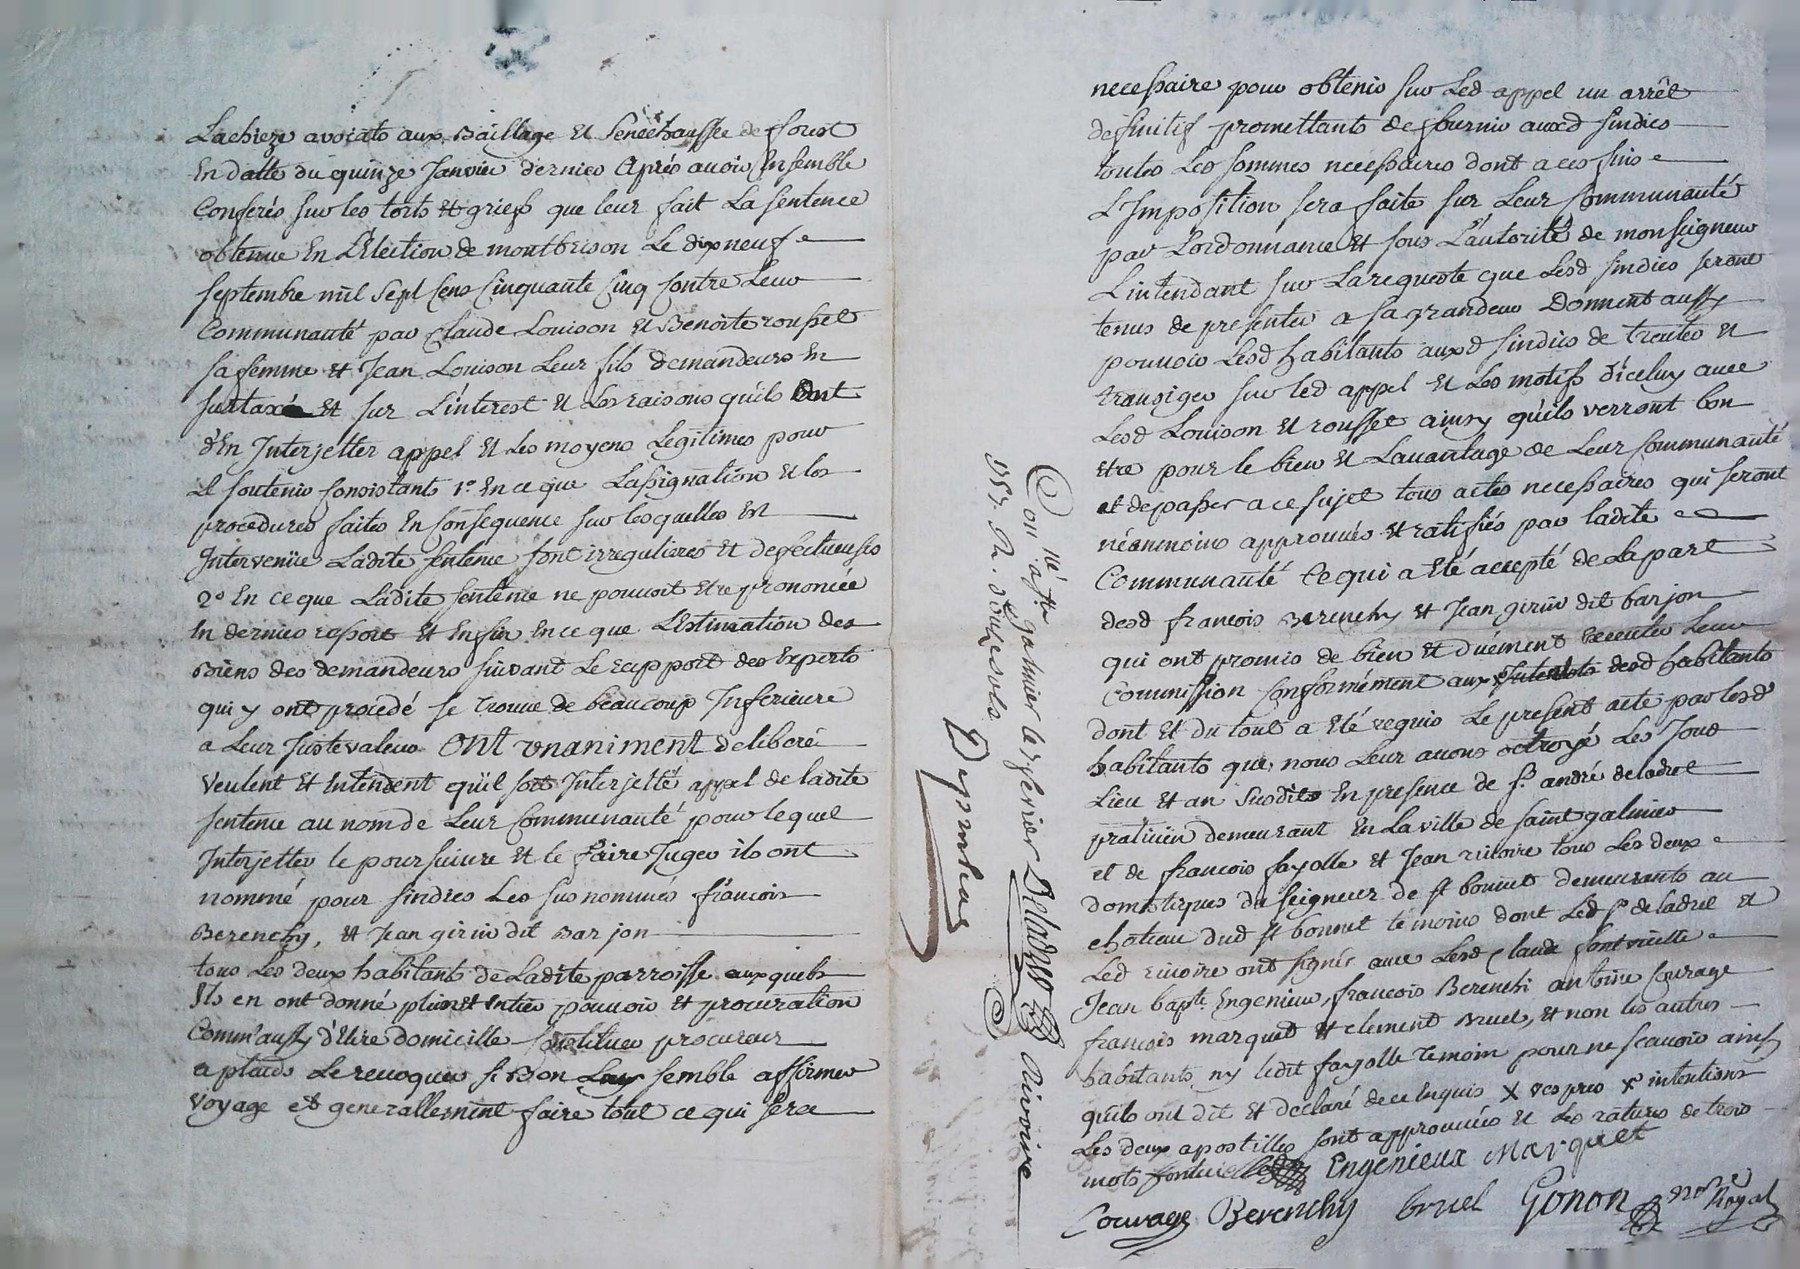 Lachieze avocats aux Baillage et Senechaussée de forest
En datte du quinze Janvier dernier Aprés avoir Ensemble
Conferés sur les torts et griefs que leur fait La sentence
obtenue En L'Election de montbrison Le dix neuf
septembre mil sept Cens Cinquante Cinq Contre Leur
Communauté par Claude Louison et Benoite rousset
sa femme et Jean Louison Leur fils demandeurs En
surtaxe et sur L'interest et Les raisons qu'ils ont
d'En Interjetter appel et Les moyens Legitimes pour
Le soutenir Consistants 1º. En ce que L'assignation et les
procedures faites En Consequence sur lesquelles Est
Intervenüe Ladite sentence sont irregulieres et defectueuses
2º En ce que Ladite sentence ne pouvoit Etre prononcée
En dernier resort et Enfin En ce que L'Estimation des
Biens des demandeurs suivant Le rapport des Experts
qui y ont procedé se trouve de beaucoup Inferieure
a Leur Juste valeur ont unaniment deliberé
veulent et Entendent qu'il soit Interjetté appel de ladite
sentence au nom de Leur Communauté pour lequel
Interjetter le poursuivre et le faire Juger ils ont
nommé pour sindics Les susnommés francois
Berenchy, et Jean girin dit Barjon
tous Les deux habitants de Ladite parroisse auxquels
Ils en ont donné plein et Entier pouvoir et procuration
Comm'aussy d'Elire domicille Constituer procureur
a plaids Le revoquer si Bon Luy semble affirmer
voyage et generallement faire tout ce qui sera
necessaire pour obtenir sur Led appel un arrêt
definitif promettants de fournir auxd sindics
toutes Les sommes necessaires dont a ces fins
L'Imposition sera faite sur Leur Communauté
par L'ordonnance et sous L'autorité de monseigneur
L'intendant sur La requeste que Lesd sindics seront
tenus de presenter a sa grandeur Donnent aussy
pouvoir Lesd habitants auxd sindics de traiter et
transiger sur led appel et Les motifs d'iceluy avec
Lesd Louison et rousset ainsy qu'ils verront bon
Etre pour le bien et L'avantage de Leur Communauté
et de passer a ce sujet tous actes necessaires qui seront
néanmoins approuvés et ratifiés par ladite
Communauté Ce qui a Eté accepté de La part
desd francois Berenchy et Jean girin dit barjon
qui ont promis de bien et duëment Executer Leur
Commission Conformément aux desd habitants
dont et du tout a Eté requis Le present acte par Lesd
habitants que nous Leur avons octroyé Les Jour
Lieu et an susdits En presence de sr. andré deladret
praticien demeurant En La ville de saint galmier
et de francois fayolle et Jean rivoire tous Les deux
domestiques du seigneur de st bonnet demeurants au
château dud st bonnet temoins dont Led sr deladret et
Led rivoire ont signés avec Lesd Claude fontvielle
Jean bapte. Engenieur, francois Berenchi antoine Courage
francois marquet et clement Bruel, et non les autres
habitants ny ledit fayolle temoin pour ne scavoir ainsy
qu'ils ont dit et declaré de ce Enquis X X intentions
Les deux apostilles sont approuvées et Les ratures de trois
mots fontvielle Engenieux Marquet
Courage Berenchy bruel Gonon nore Royal
Con lé a st galmier le 7 fevrier Delladret Rivoire
1757. R. douze sols